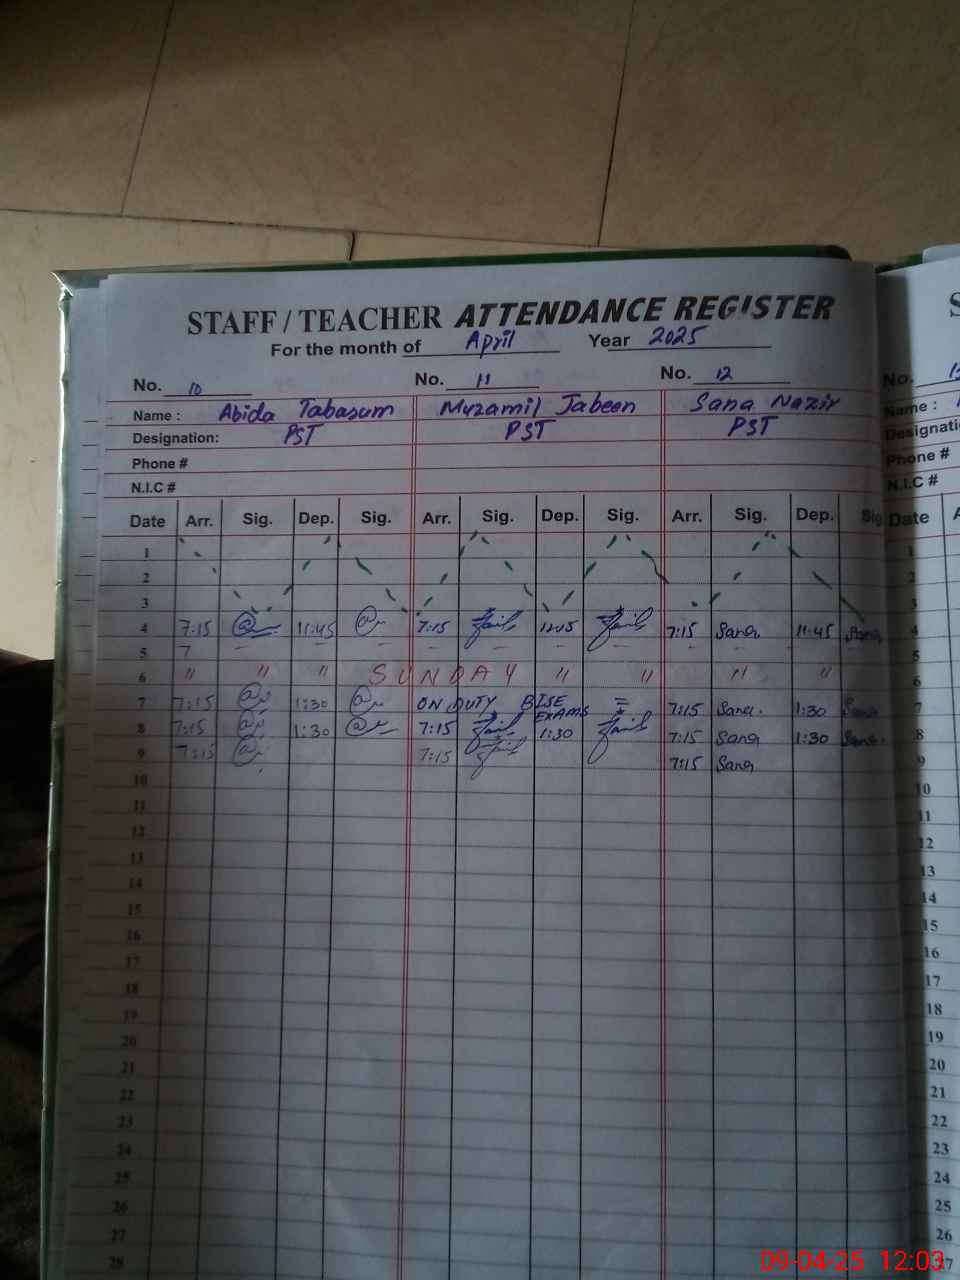 STAFF / TEACHER ATTENDANCE REGISTER
For the month of April Year 2025
No. 10 No. 11 No. 12
Name : Abida Tabasum Muzamil Jabeen Sana Nazir
Designation: PST PST PST
Phone #
N.I.C #
Date Arr. Sig. Dep. Sig. Arr. Sig. Dep. Sig. Arr. Sig. Dep. Sig
1
2
3
4 7:15 11:45 7:15 7:15 Sana. 11:45 Sana
5 7
6 " " " SUNDAY " " " "
7 7:15 1:30 ON DUTY BISE EXAMS = 7:15 Sana. 1:30 Sana
8 7:15 1:30 7:15 1:30 7:15 Sana 1:30 Sana.
9 7:15 7:15 7:15 Sana
10
11
12
13
14
15
16
17
18
19
20
21
22
23
24
25
26
27
28
No.
Name :
Phone #
N.I.C #
Date
1
2
3
4
5
6
7
8
9
10
11
12
13
14
15
16
17
18
19
20
21
22
23
24
25
26
27
09-04-25 12:03